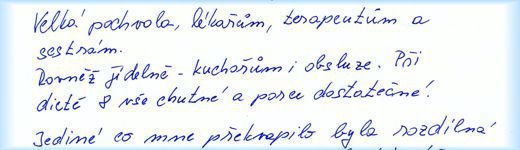 Velká pochvala, lékařům, terapeutům a
sestrám.
Rovněž jídelně - kuchařům i obsluze. Při
dietě 8 vše chutné a porce dostatečné!
Jediné co mne překvapilo byla rozdílná